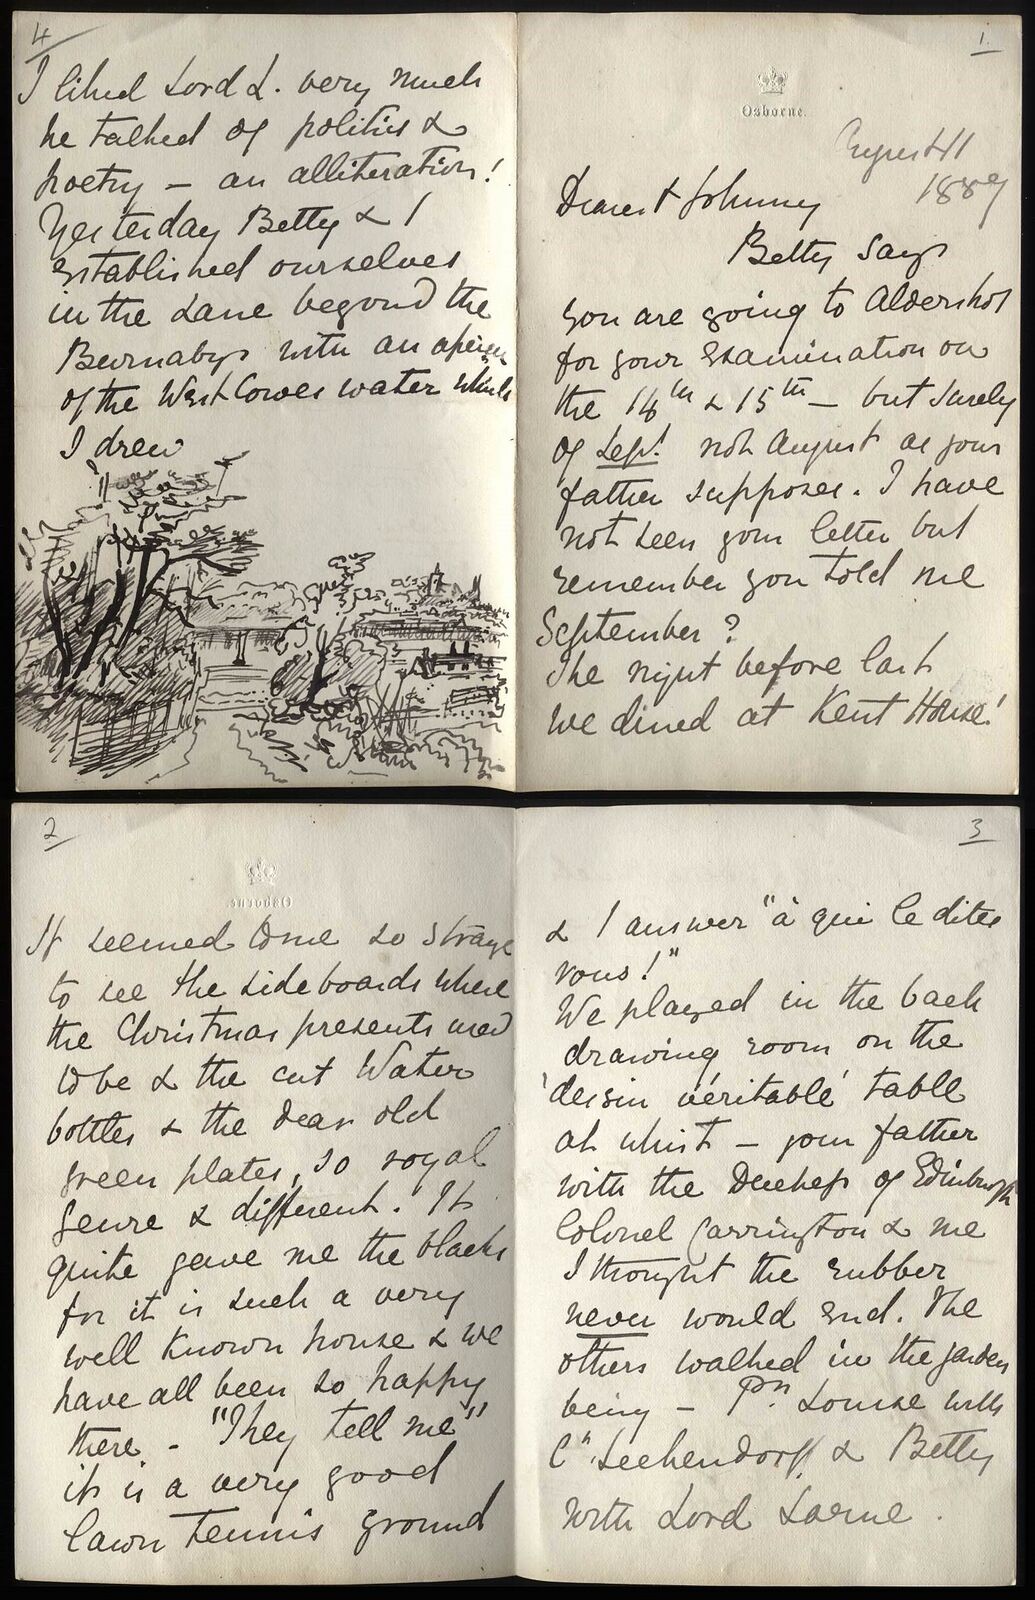 1.
Osborne.
August 11
1889
Dearest Johnny
Betty says
you are going to Aldershot
for your Examination on
the 14th & 15th — but surely
of Sept! not August as your
father supposes. I have
not seen your letter but
remember you told me
September?
The night before last
we dined at Kent House!
2
Osborne
It seemed to me so strange
to see the sideboards where
the Christmas presents used
to be & the cut Water
bottles & the dear old
green plates, so royal
genre & different. It
quite gave me the blacks
for it is such a very
well known house & we
have all been so happy
there - "They tell me"
it is a very good
lawn tennis ground
3
& I answer "à qui le dites
vous!"
We played in the back
drawing room on the
véritable' table
at whist — your father
with the Duchess of Edinburgh
Colonel Carrington & me
I thought the rubber
never would end. The
others walked in the garden
being — Pss Louise with
Ct Seckendorff & Betty
with Lord Lorne.
4
I liked Lord L. very much
he talked of politics &
poetry — an alliteration!
Yesterday Betty & I
established ourselves
in the Lane beyond the
Burnabys with an
of the West Cowes water which
I drew